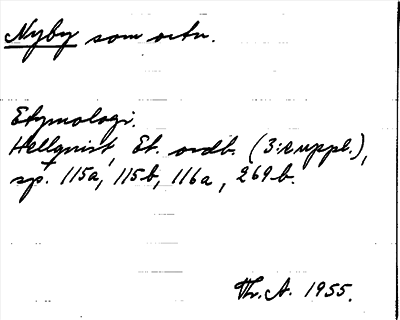 Nyby som ortn.
Etymologi.
Hellquist, Et. ordb. (3:e uppl.),
sp. 115a, 115b, 116a, 269b.
Th. A. 1955.